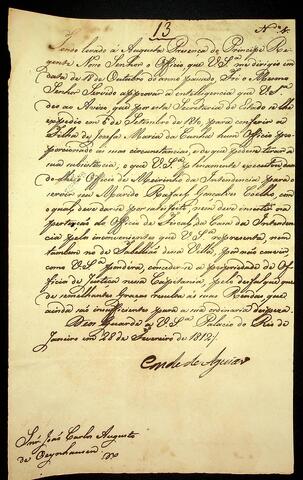 13
N.º 4.
Tendo levado á Augusta Presença do Principe Re-
gente Nosso Senhor o Officio que V.S.ª me dirigio em
data de 18 de Outubro do anno passado, Foi o Mesmo
Senhor Servido approvar a intelligencia que V.S.ª
deo ao Aviso, que por esta Secretaria de Estado se lhe
expedio em 6 de Setembro de 1810, para conferir a
Filha de Josefa Maria da hum Officio pro-
porcionado ás suas circunstancias, e de que podesse tirar a
sua subsistencia, o que V.S.ª plenamente executou dan-
do-lhe o Officio de Meirinho da Intendencia para o
servir seu Marido Rafael Gonçalves Coelho, com
o qual deve dar-se por satisfeita, nem deve insistir na
pertenção do Officio de Fiscal da Casa da Inten-
dencia pelo inconveniente que V.S.ª representa, nem
tambem no de Tabellião dessa Villa, por não convir
como V.S.ª pondera, conceder-se a propriedade de Of-
ficios de Justiça nessa Capitania, pelo desfalque que
de semelhantes Graças resulta ás suas Rendas que
ainda são insufficientes para a sua ordinaria despeza.
Deos Guarde a V.S.ª Palacio do Rio de
Janeiro em 28 de Fevereiro de 1812.
Conde de Aguiar
Snr. João Carlos Augusto
de Oeynhausen